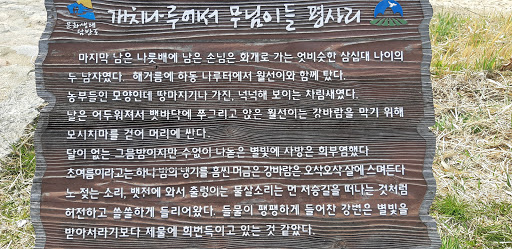 문화생태탐방로
개치나루에서 무딤이들 평사리
마지막 남은 나룻배에 남은 손님은 화개로 가는 엇비슷한 삼십대 나이의
두 남자였다. 해거름에 하동 나루터에서 월선이와 함께 탔다.
농부들인 모양인데 땅마지기나 가진, 넉넉해 보이는 차림새였다.
날은 어두워져서 뱃바닥에 쭈그리고 앉은 월선이는 강바람을 막기 위해
모시치마를 걷어 머리에 싼다.
달이 없는 그믐밤이지만 수없이 나돋은 별빛에 사방은 희부염했다
초여름이라고는 하나 밤의 냉기를 흠씬 머금은 강바람은 오삭오삭 살에 스며든다
노 젓는 소리, 뱃전에 와서 출렁이는 물살소리는 먼 저승길을 떠나는 것처럼
허전하고 쓸쓸하게 들리어왔다. 들물이 팽팽하게 들어찬 강변은 별빛을
받아서라기보다 제물에 희번득이고 있는 것 같았다.